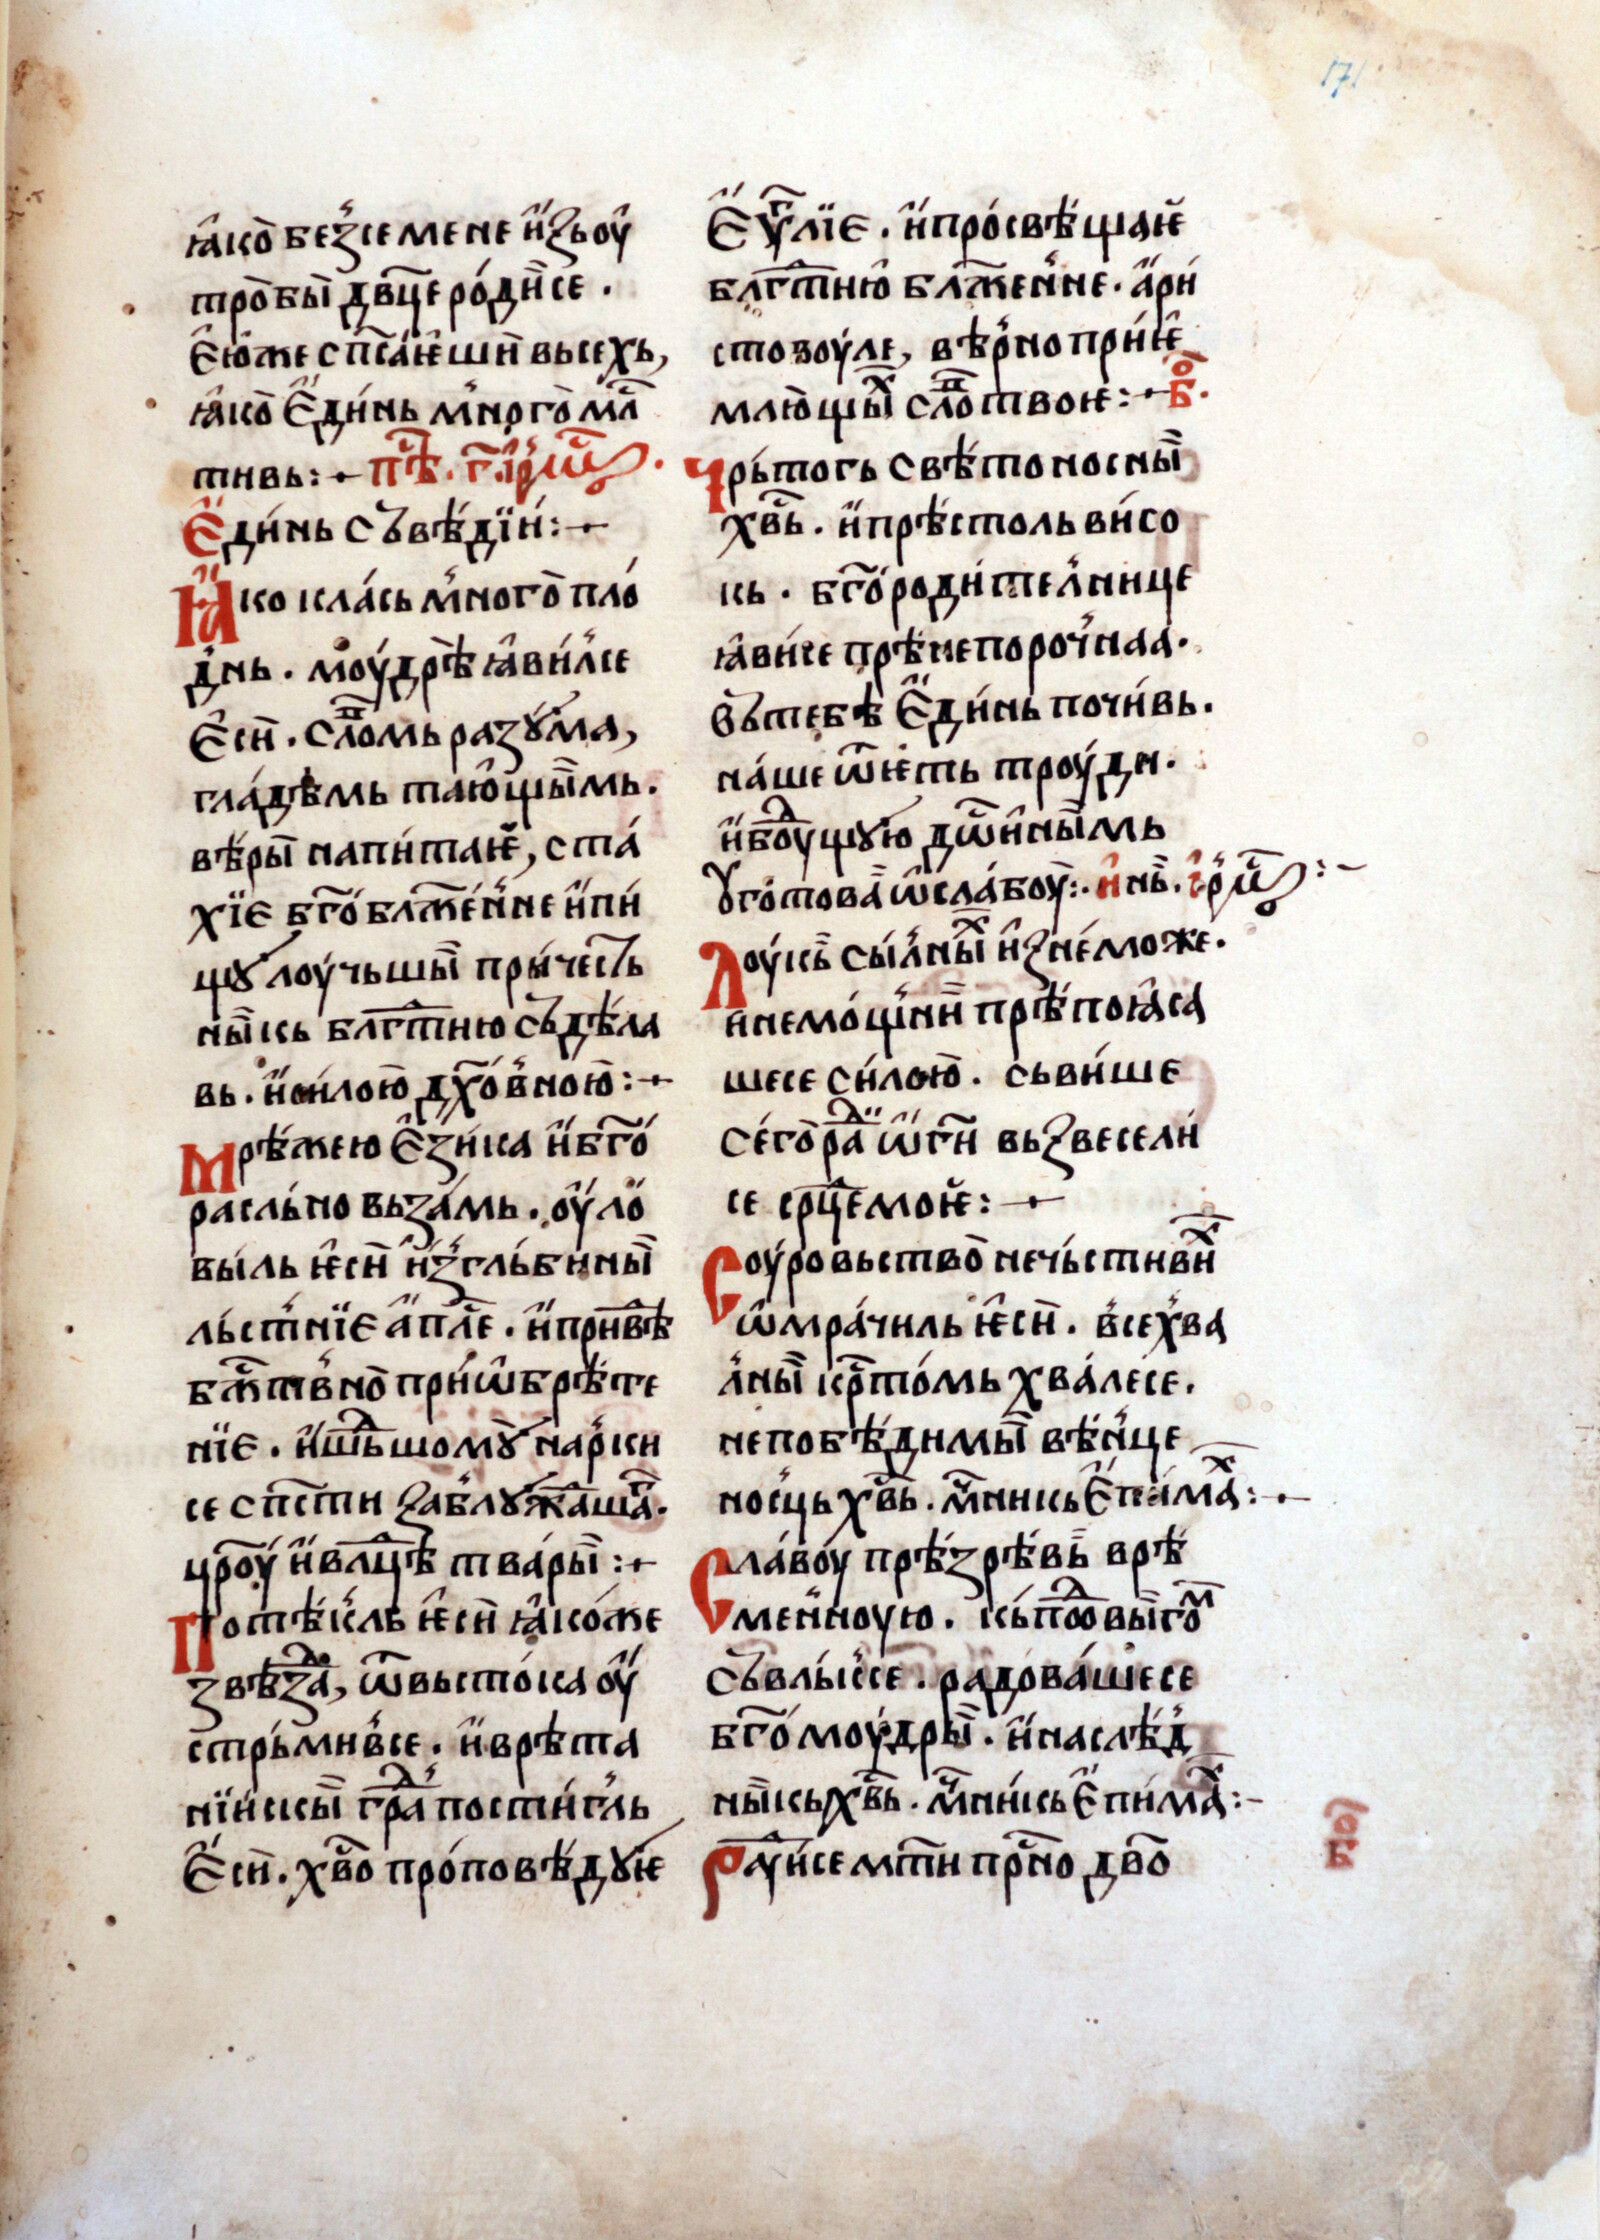 171
ꙗко без семене изь оу
тробы дв҃це роди се .
Ѥюже сп҃саѥши вьсехь,
ꙗко Єдинь много мл҇
тивь :· пѣ҇. г҃. ірмѡ҇.
Єдинь съвѣдїи :·
Ꙗко класъ много пло
днь . моудрѣ ꙗвил се
Єси . слѡ҇мь разꙋма,
гладѣмь тающымь .
вѣры напитаѥ, ста
хїє бг҃облаж҇енне и пи
щꙋ лоучьшы причесть
ныкь блг҇тию съдѣла
вь . и силою дх҃овною :·
Мрѣжею Єзика и бг҃о
расльно вьзамь . оуло
выль ѥси изь гльбины
льстнїє ап҇ле . и привѣ
бж҇твно приѡбрѣте
нїє . и шьд҇шомꙋ нарки
се сп҇сти заблꙋжд҇аша҇ .
цр҃оу и вл҇цѣ твары :·
Потѣкль ѥси ꙗкоже
звѣзда҇, ѿ вьстока оу
стрьмив се . и врѣта
нїискы град҇ постигль
Єси . хв҃о проповѣдꙋѥ
Єѵ҇лїє . и просвѣщаѥ
блг҇тию блаж҇енне . ари
стовоуле, вѣрно приѥ
млющых҇ слѡ҇ твоѥ :· б҃о.
Чрьтогь свѣтоносны
хв҃ь . и прѣстоль висо
кь . бг҃ородителнице
ꙗви се прѣнепорочнаа .
въ тебѣ Єдинь почивь .
наше ѿѥть троуди .
и боуд҇щꙋю дѡиным҇ь
ꙋготова ѡслабоу :· и нь҇. ірмѡ҇ :·
Лоукь сылных҇ изнеможе .
и немощнии прѣпоꙗса
ше се силою . сь више
сего рад҇и ѡ г҃и вьзвесели
се ср҇це моѥ :·
Соуровьство нечьстивих҇
ѡмрачиль ѥси . всехва
лны кр҇томь хвале се .
непобѣдимы вѣнце
носць хв҃ь . мн҇икь Єпимах҇ :·
Славоу прѣзрѣвь врѣ
менноую . кь пѡд҇выгом҇
съвлык се . радоваше се
бг҃омоудры . и наслѣд
ныкь хв҃ь . мн҇икь Єпимах҇ :·
Раꙋи се мт҃и пр҇но дв҃о